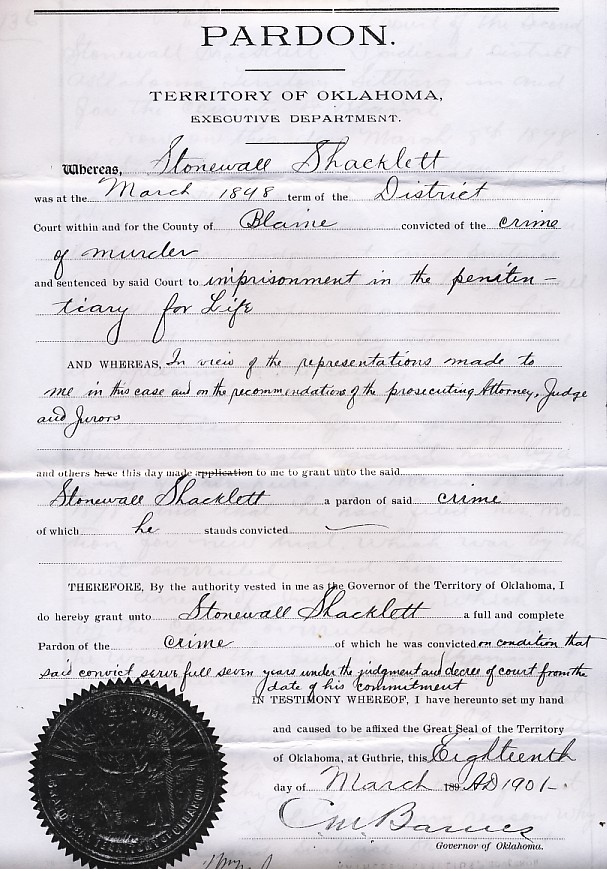 PARDON.
TERRITORY OF OKLAHOMA,
EXECUTIVE DEPARTMENT.
Whereas, Stonewall Shacklett
was at the March 1898 term of the District
Court within and for the County of Blaine convicted of the crime
of murder
and sentenced by said Court to imprisonment in the peniten-
tiary for Life
AND WHEREAS, In view of the representations made to
me in this case and on the recommendations of the prosecuting Attorney, Judge
and Jurors
and others have this day made application to me to grant unto the said
Stonewall Shacklett a pardon of said crime
of which he stands convicted
THEREFORE, By the authority vested in me as the Governor of the Territory of Oklahoma, I
do hereby grant unto Stonewall Shacklett a full and complete
Pardon of the crime of which he was convicted on condition that
said convict serve full seven years under the judgment and decree of court from the
date of his commitment
IN TESTIMONY WHEREOF, I have hereunto set my hand
and caused to be affixed the Great Seal of the Territory
of Oklahoma, at Guthrie, this Eighteenth
day of March 189 AD 1901-
C M Barnes
Governor of Oklahoma.